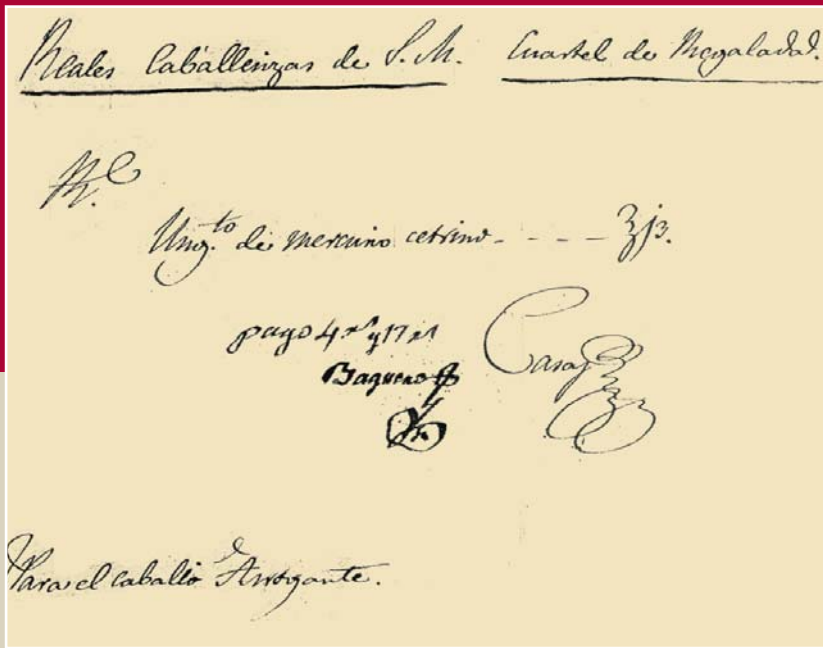 Reales Caballerizas de S. M. Cuartel de Regalada.
R.e
Ung.to de mercurio cetrino - - - - ℥jß.
pago 4 rs y 17 ms
Baquero
Casas
Para el caballo Arrogante.